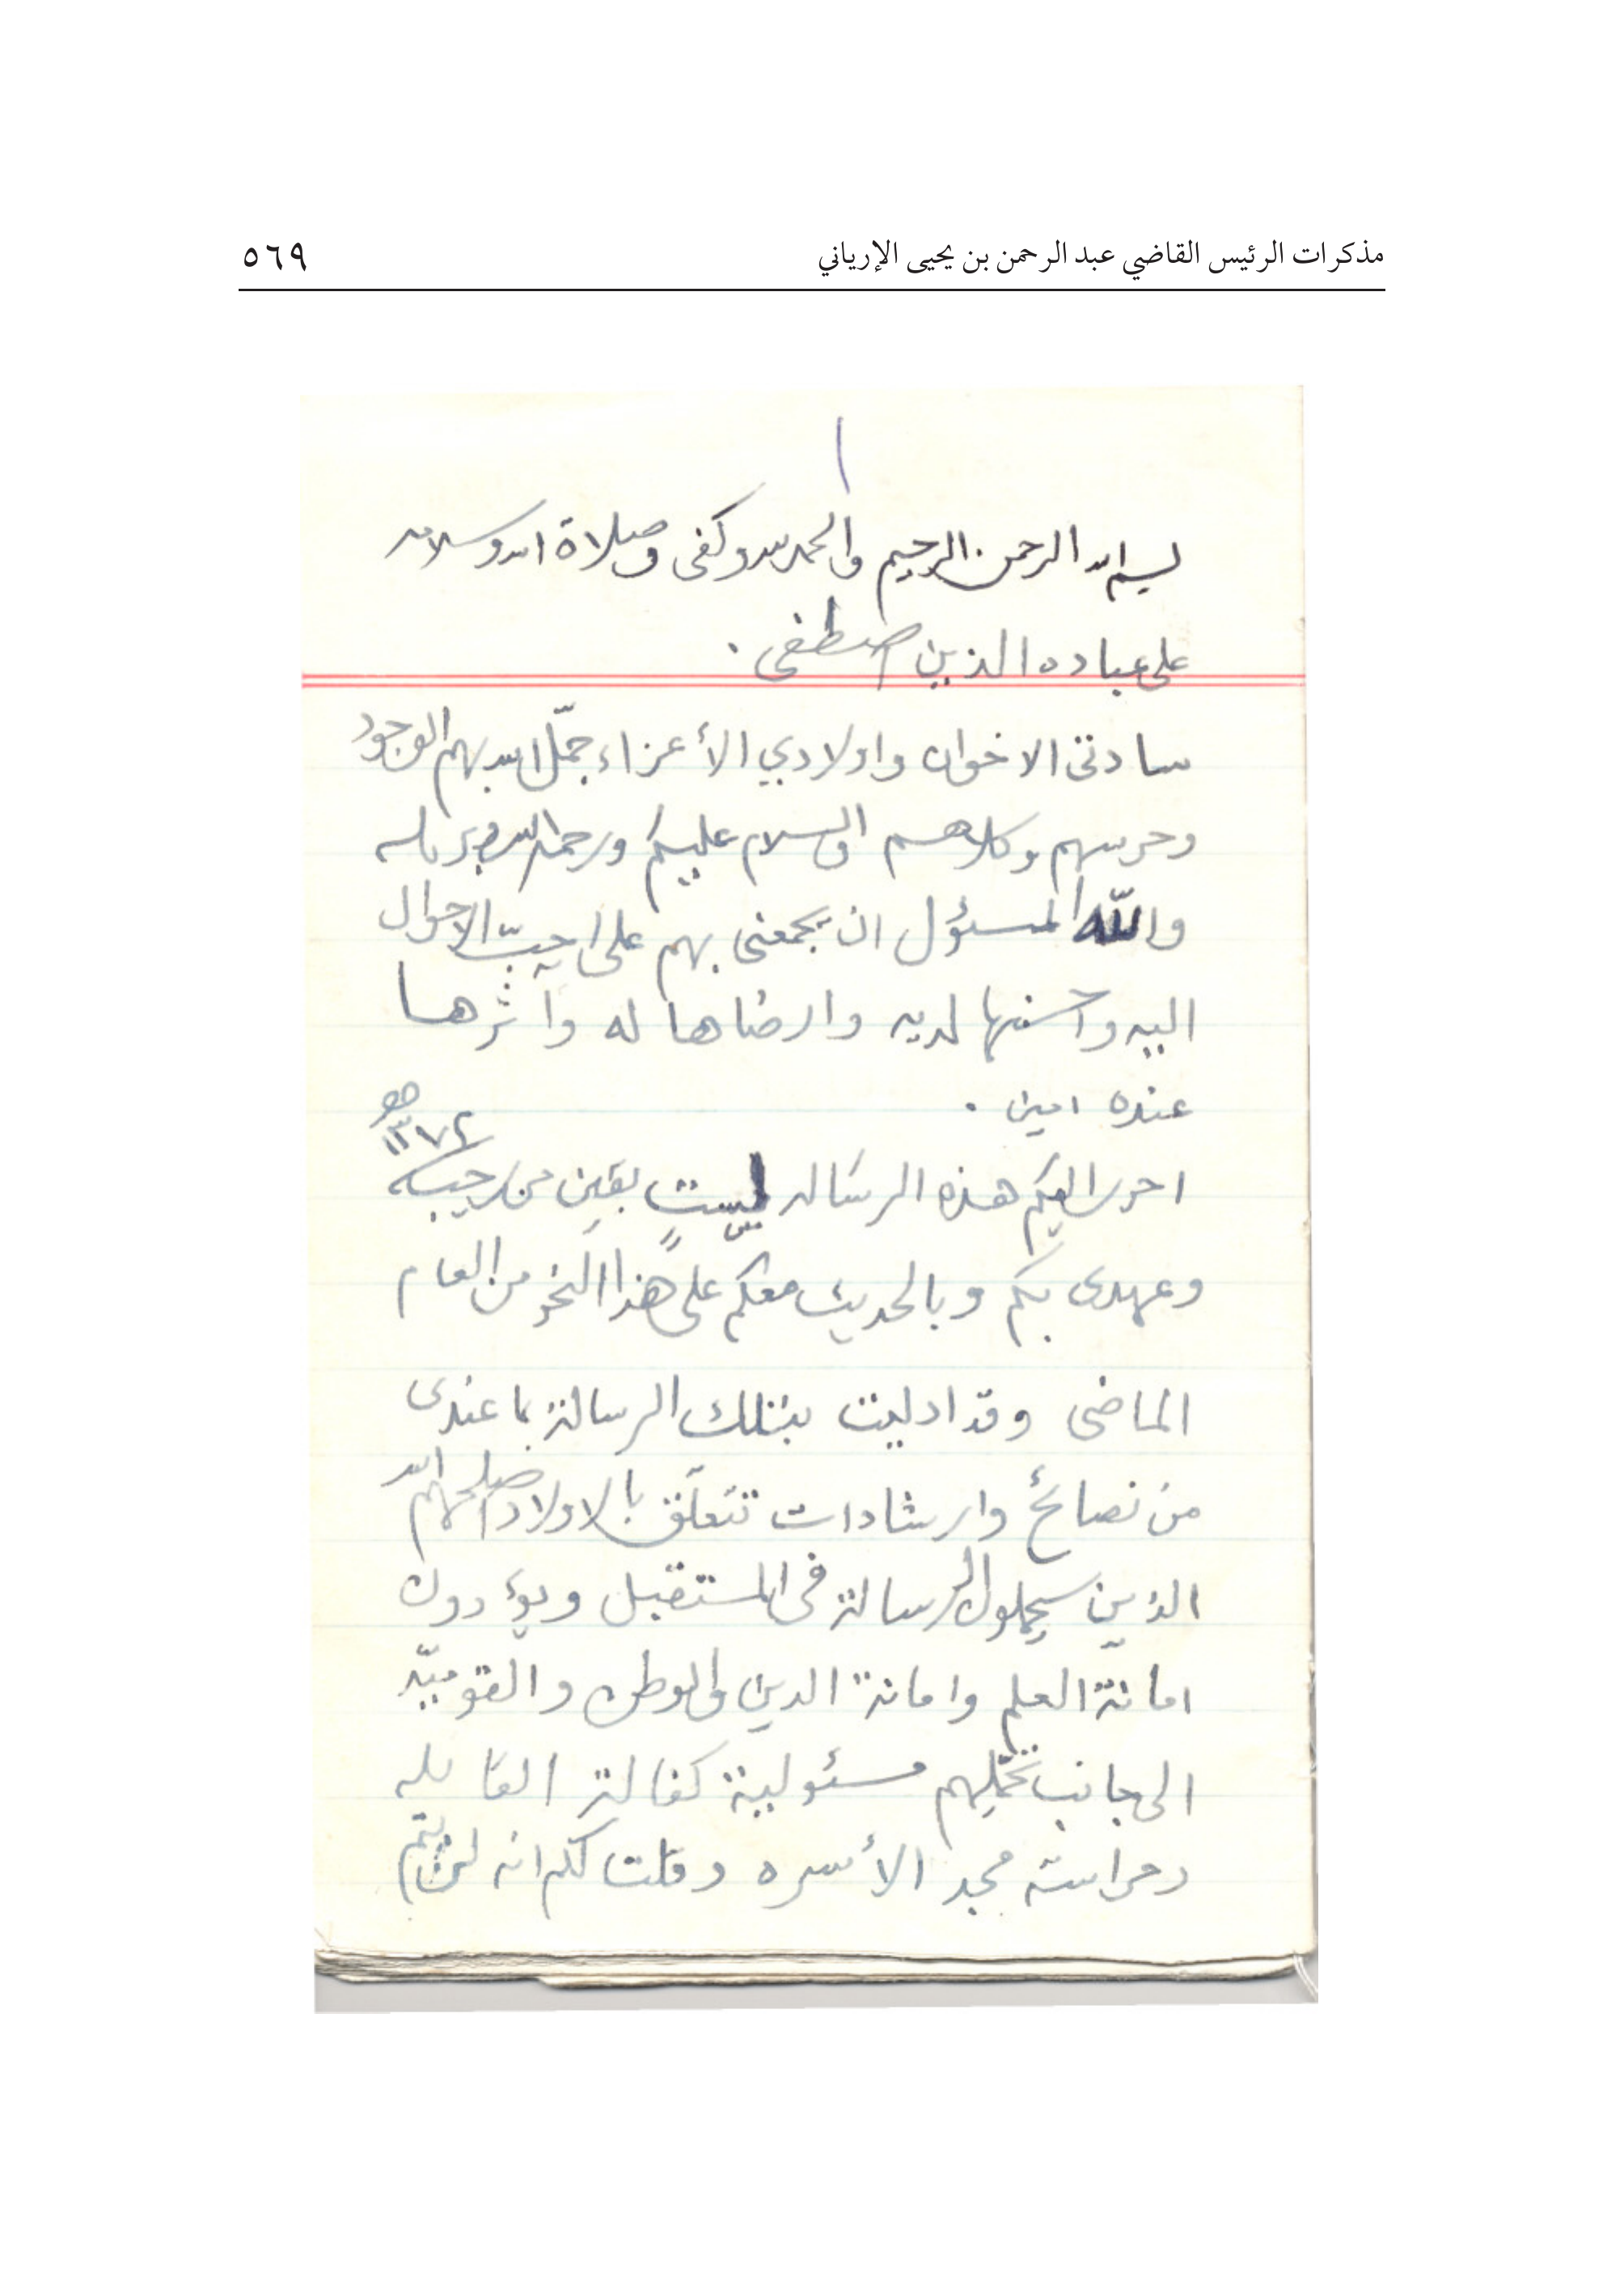 مذكرات الرئيس القاضي عبد الرحمن بن يحيى الإرياني ٥٦٩
١
بسم الله الرحمن الرحيم والحمد لله وكفى وصلاة الله وسلامه
على عباده الذين اصطفى .
سادتى الاخوان واولادي الأعزاء جمّل الله بهم الوجود
وحرسهم وكلاهم والسلام عليكم ورحمة الله وبركاته
والله المسئول ان يجمعنى بهم على احبّ الاحوال
اليه واحسنها لديه وارضاها له وآثرها
عنده امين .
احرر اليكم هذه الرساله لستٍ بقين من رجب سنة ١٣٧٤هـ
وعهدى بكم وبالحديث معكم على هذا النحو من العام
الماضى وقد ادليت بتلك الرسالة بما عندى
من نصائح وارشادات تتعلّق بالاولاد اصلحهم الله
الذين سيحملون الرسالة فى المستقبل ويؤدون
امانة العلم وامانة الدين والوطن والقوميّه
الى جانب تحمّلهم مسئولية كفالة العائله
وحراسة مجد الأسره وقلت لكم انه لن يتم